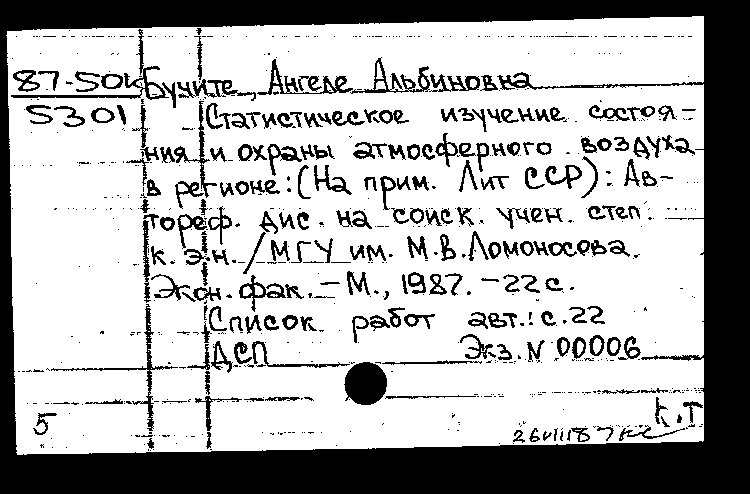 87-50к Бучите, Ангеле Альбиновна
5301 Статистическое изучение состоя-
ния и охраны атмосферного воздуха
в регионе: (На прим. Лит ССР): Ав-
тореф. дис. на соиск. учен. степ.
к. э.н. / МГУ им. М.В.Ломоносова.
Экон. фак. - М., 1987. - 22 с.
Список работ авт.: с. 22
ДСП Экз. N 00006
5 К.Т